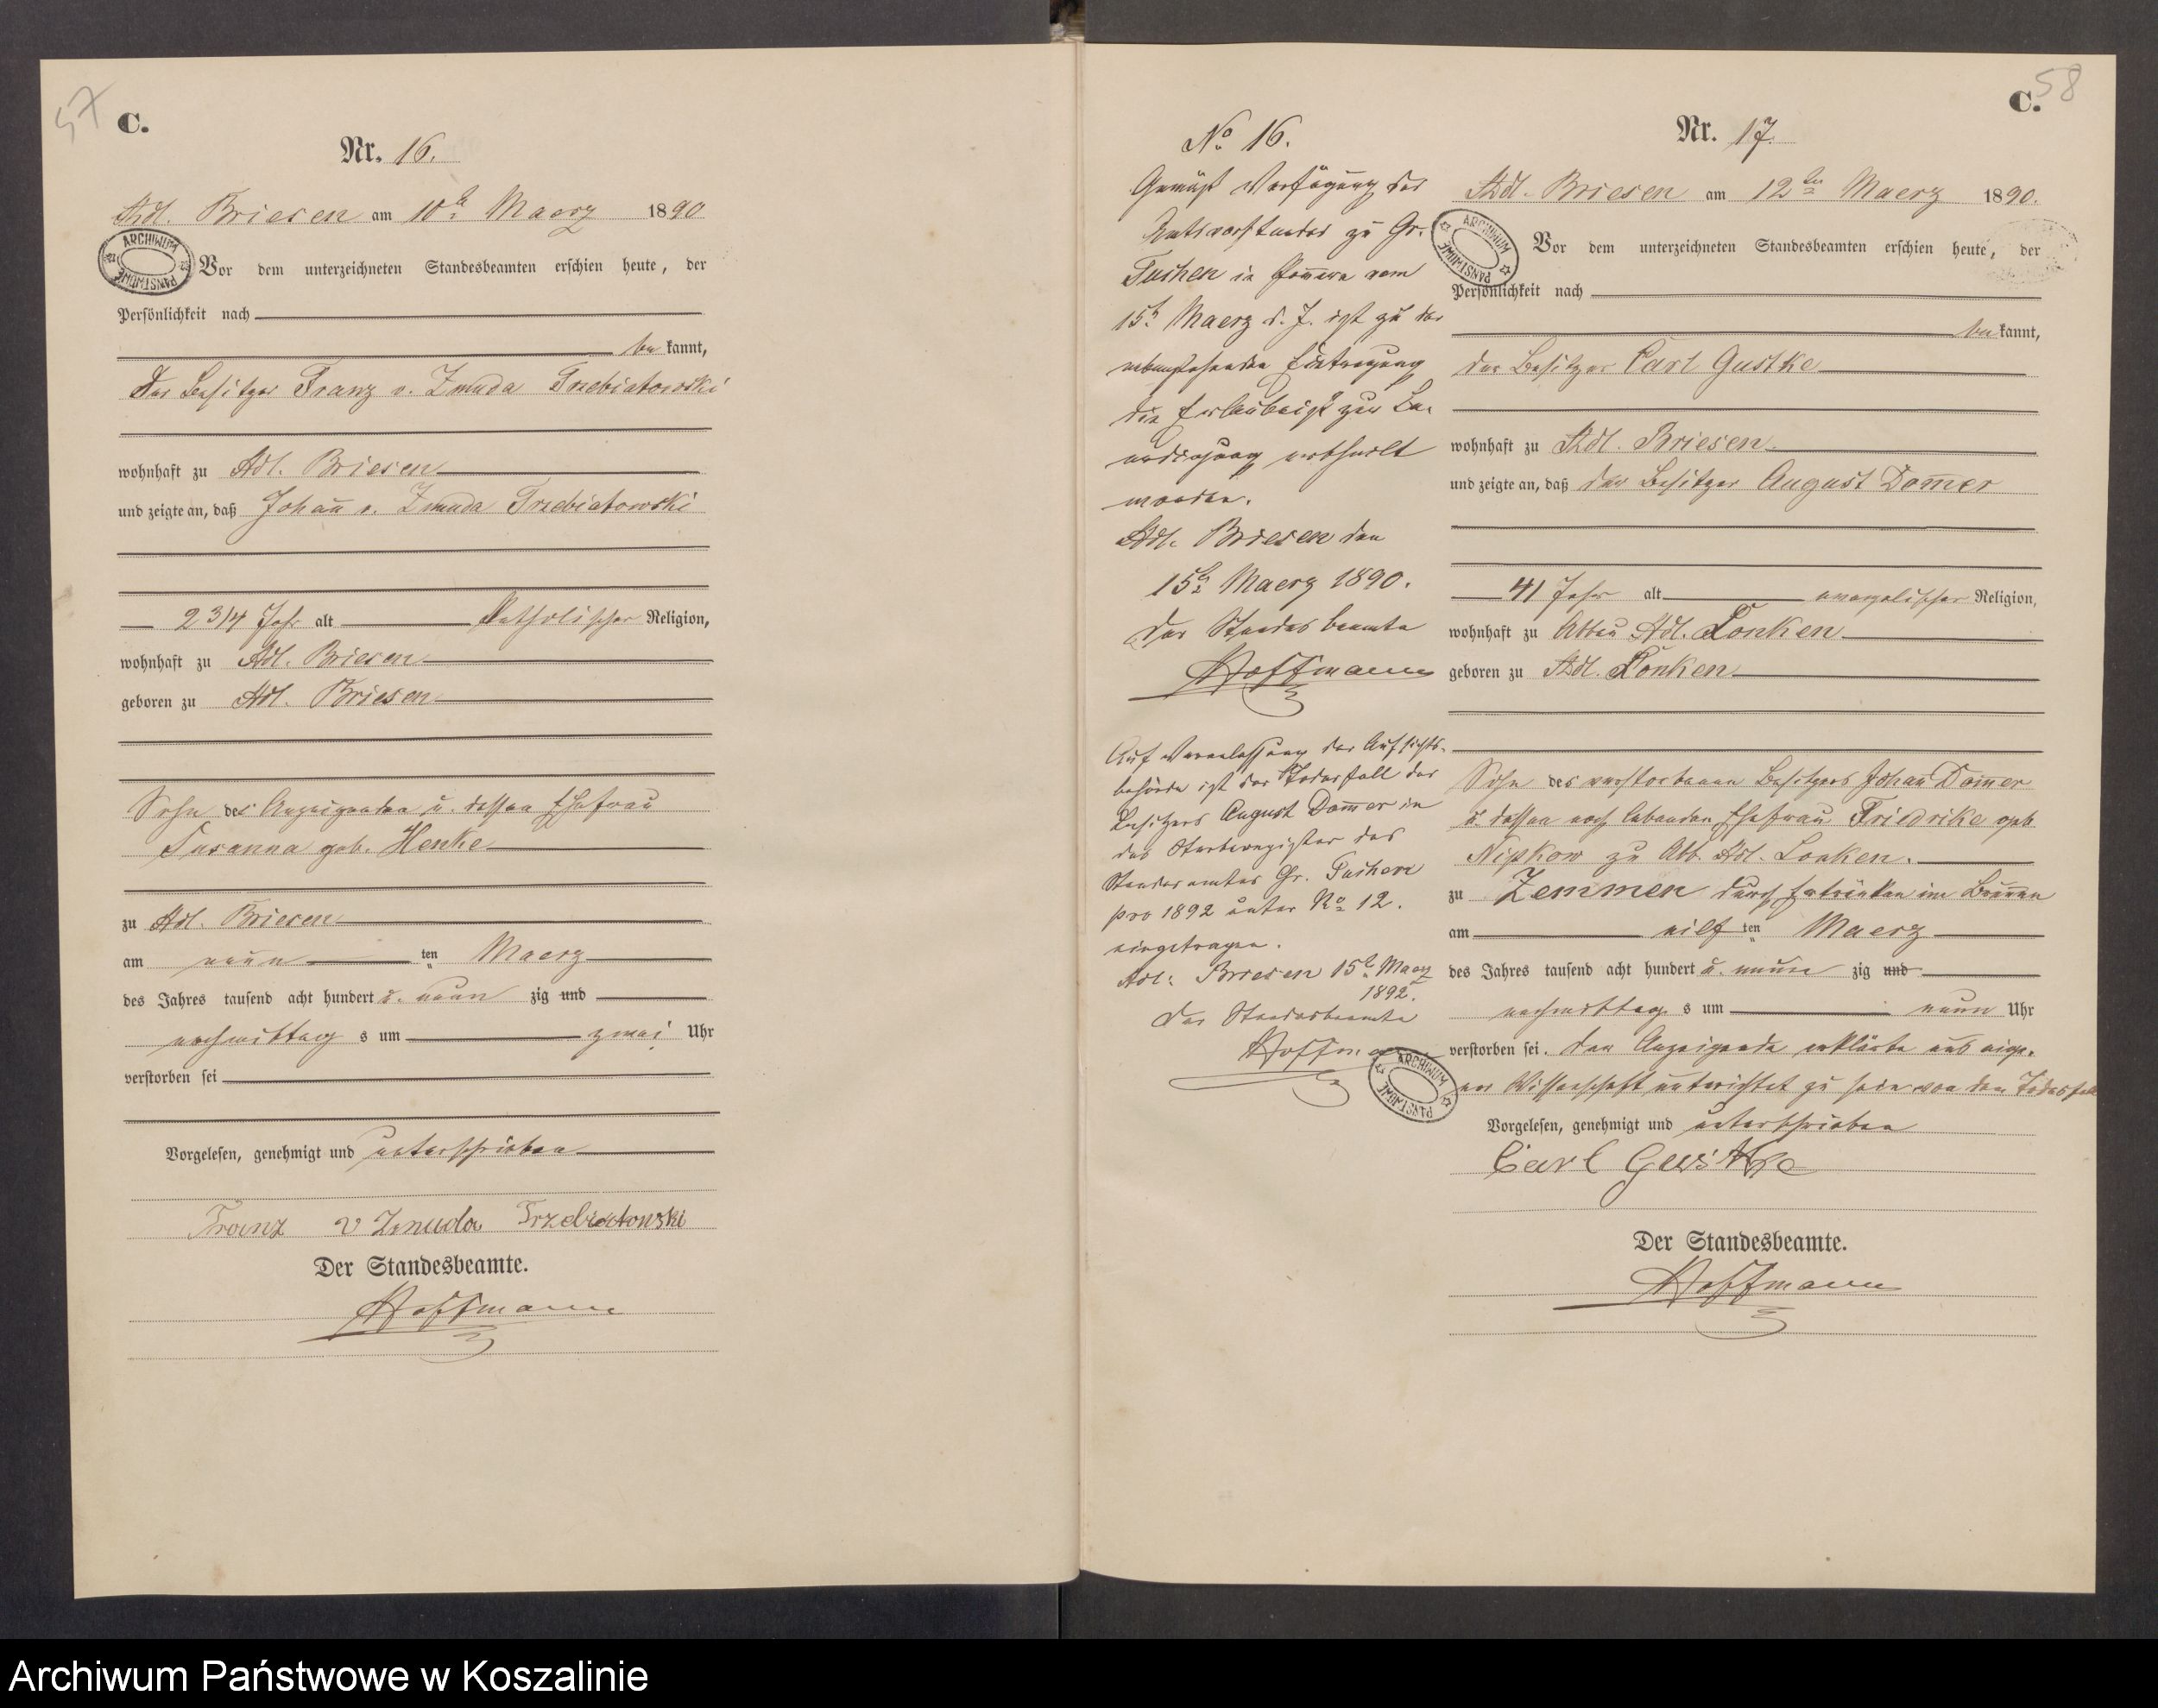 57
C.
Nr. 16.
Adl. Briesen am 10ten Maerz 1890
ARCHIWUM PAŃSTWOWE
Vor dem unterzeichneten Standesbeamten erschien heute, der
Persönlichkeit nach
be kannt,
der Besitzer Franz v. Zmuda Trzebiatowski
wohnhaft zu Adl. Briesen
und zeigte an, daß Johan̄ v. Zmuda Trzebiatowski
2 3/4 Jahr alt katholischer Religion,
wohnhaft zu Adl. Briesen
geboren zu Adl. Briesen
Sohn des Anzeigenden u. dessen Ehefrau
Susanna geb. Henke
zu Adl. Briesen
am neun ten Maerz
des Jahres tausend acht hundert u. neun zig und
nachmittag s um zwei Uhr
verstorben sei
Vorgelesen, genehmigt und unterschrieben
Franz v Zmuda Trzebiatowski
Der Standesbeamte.
Hoffmann
No 16.
Gemäß Verfügung des
Amtsvorstandes zu Gr.
Tuchen in Pom̄ern vom
15t Maerz d. J. ist zu der
nebenstehenden Eintragung
die Erlaubniß zur Be-
erdigung ertheilt
worden.
Adl. Briesen den
15t Maerz 1890.
Der Standesbeamte
Hoffmann
Auf Veranlassung der Aufsichts-
behörde ist der Todesfall des
Besitzers August Dom̄er in
das Sterberegister des
Standesamtes Gr. Tuchen
pro 1892 unter No 12.
eingetragen.
Adl. Briesen 15t Maerz
1892.
Der Standesbeamte
Hoffmann
ARCHIWUM PAŃSTWOWE
58
C.
Nr. 17.
Adl. Briesen am 12ten Maerz 1890.
ARCHIWUM PAŃSTWOWE
Vor dem unterzeichneten Standesbeamten erschien heute, der
Persönlichkeit nach
be kannt,
der Besitzer Carl Gustke
wohnhaft zu Adl. Briesen
und zeigte an, daß der Besitzer August Dom̄er
41 Jahr alt evangelischer Religion,
wohnhaft zu Abbau Adl. Lonken
geboren zu Adl. Lonken
Sohn des verstorbenen Besitzers Johan Dom̄er
u. dessen noch lebenden Ehefrau Friedrike geb
Nipkow zu Abb. Adl. Lonken.
zu Zemmen durch Ertrinken im Brun̄en
am eilf ten Maerz
des Jahres tausend acht hundert u. neun zig und
nachmittag s um neun Uhr
verstorben sei. Der Anzeigende erklärte aus eige-
ner Wissenschaft unterrichtet zu sein von dem Todesfall
Vorgelesen, genehmigt und unterschrieben
Carl Gustke
Der Standesbeamte.
Hoffmann
Archiwum Państwowe w Koszalinie